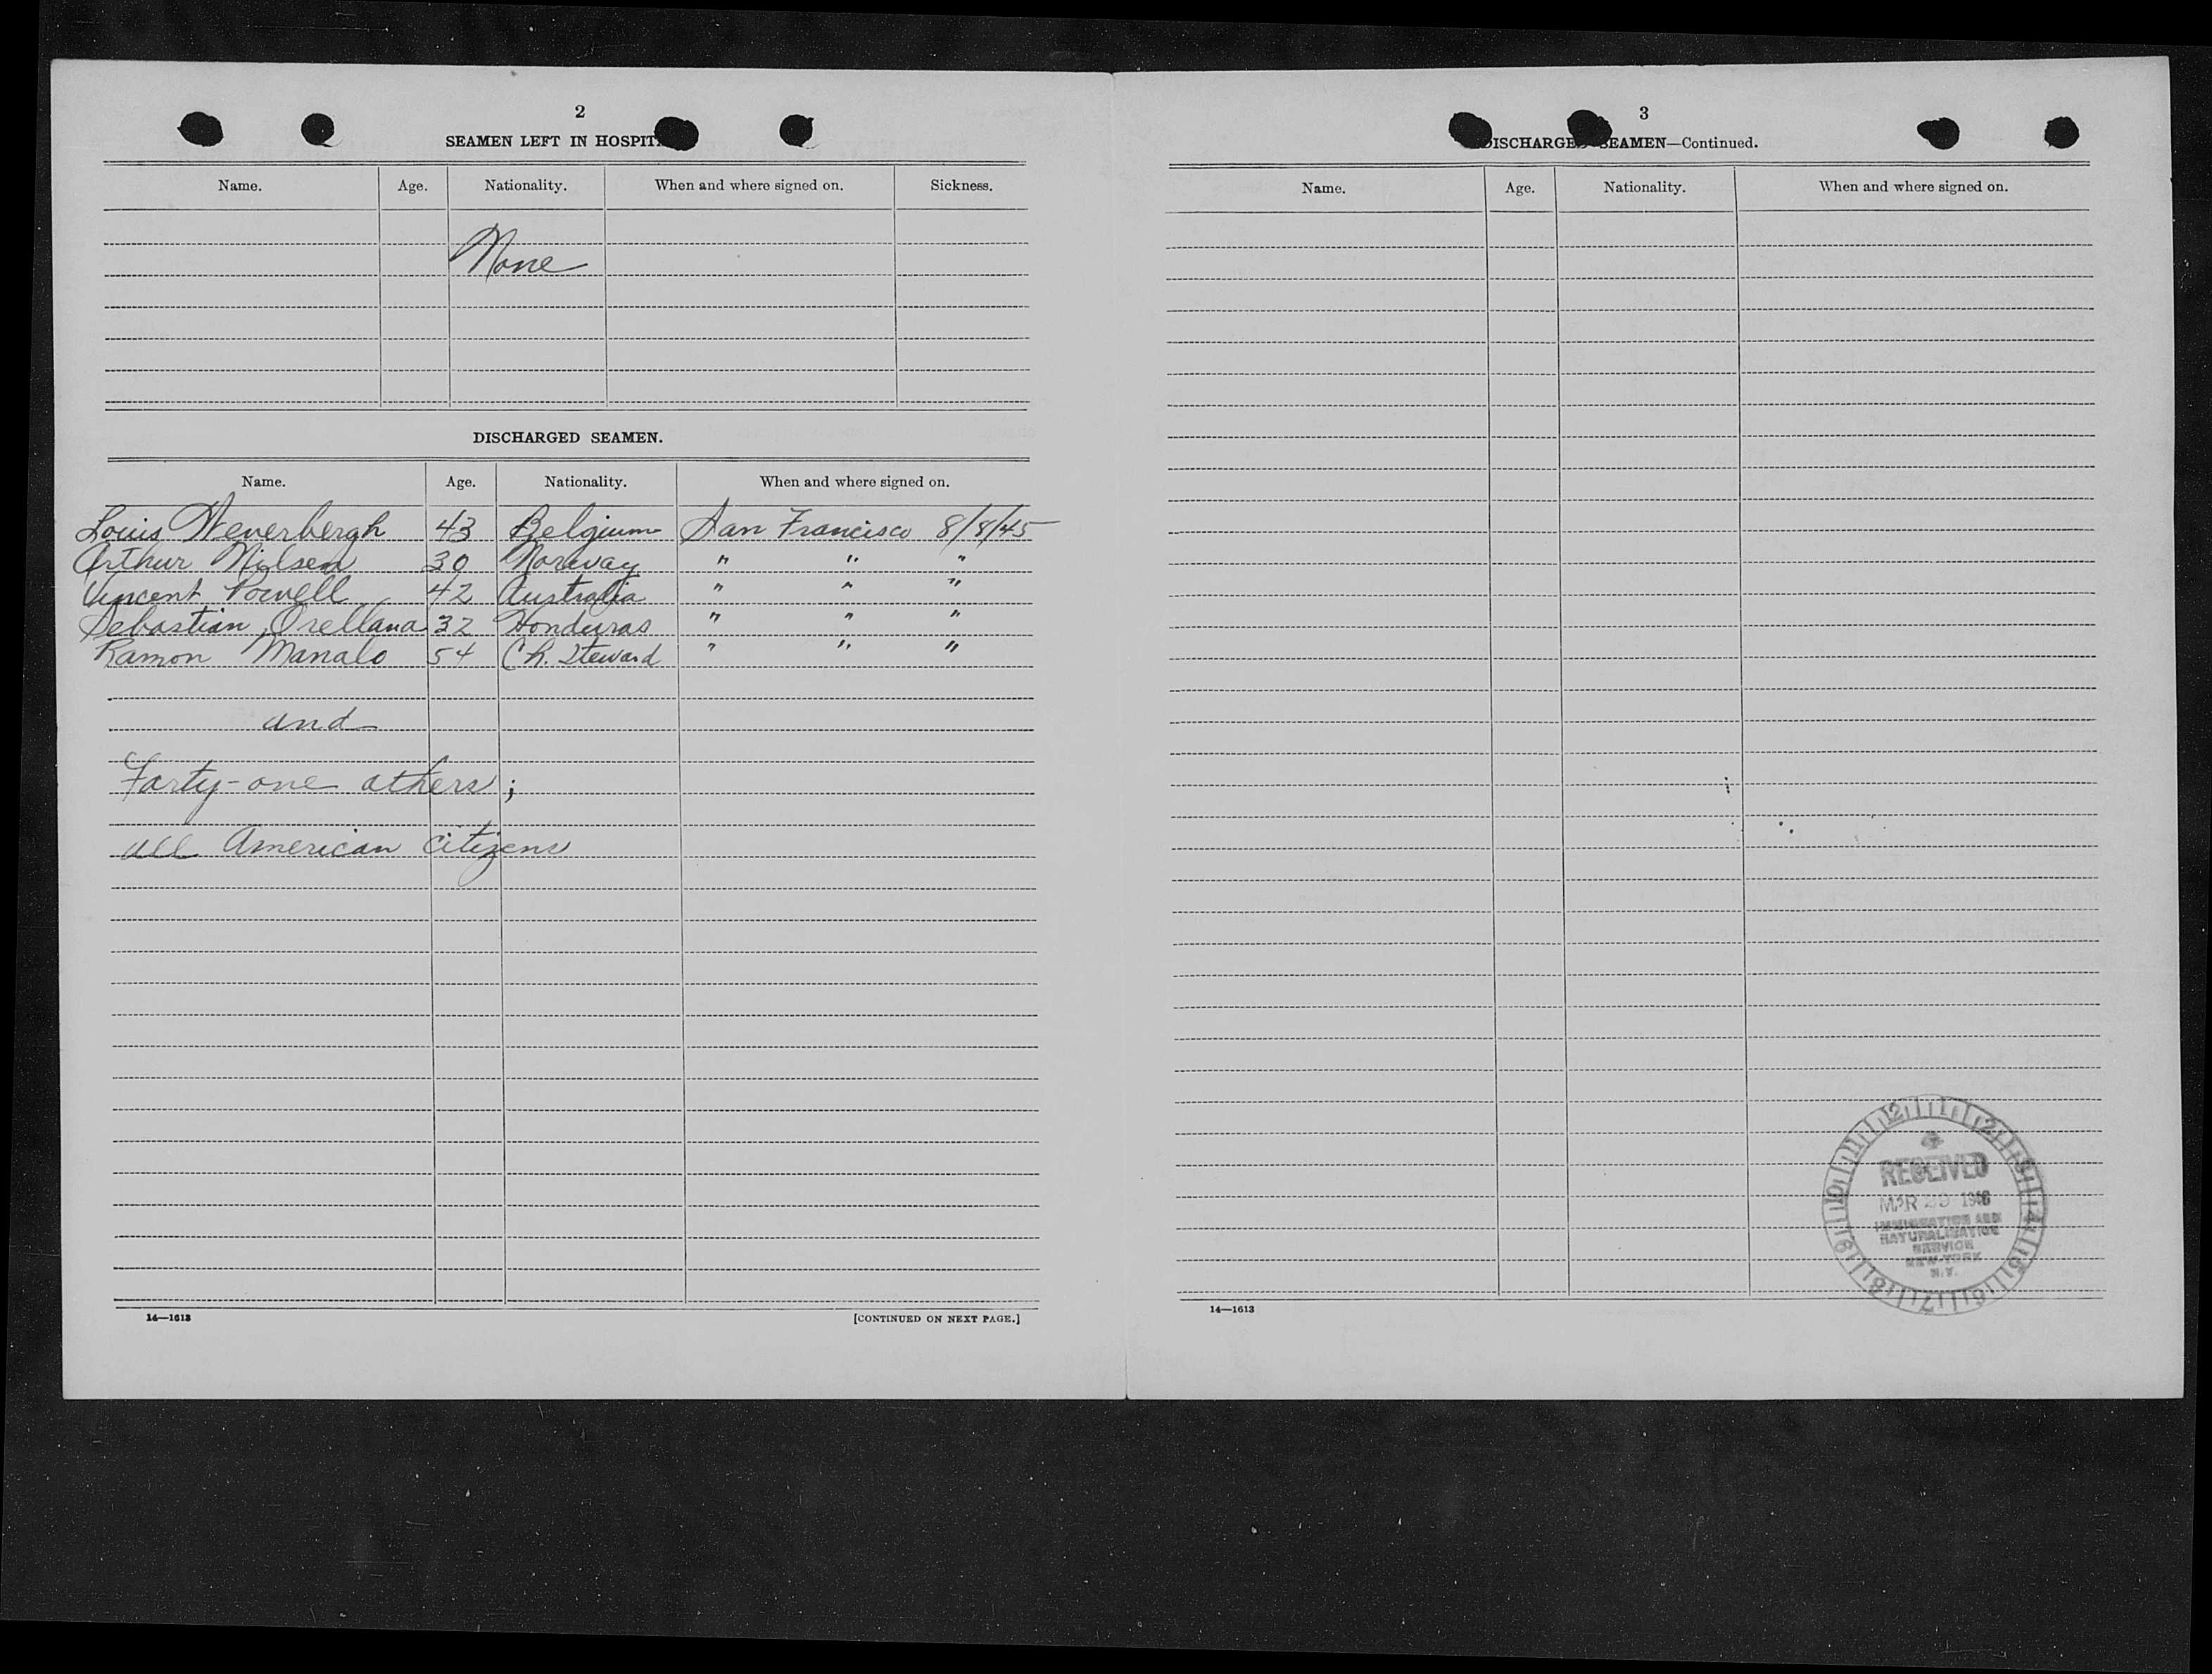 2
SEAMEN LEFT IN HOSPIT
Name. Age. Nationality. When and where signed on. Sickness.
None
DISCHARGED SEAMEN.
Name. Age. Nationality. When and where signed on.
Louis Weverbergh 43 Belgium San Francisco 8/8/45
Arthur Nilsen 30 Norway " " "
Vincent Powell 42 Australia " " "
Sebastian Orellana 32 Honduras " " "
Ramon Manalo 54 Ch. Steward " " "
and
Forty-one others;
all American Citizens
14—1613
[CONTINUED ON NEXT PAGE.]
3
DISCHARGED SEAMEN—Continued.
Name. Age. Nationality. When and where signed on.
12 1 2 3 4 5 6 7 8 9 10 11
RECEIVED
MAR 1946
IMMIGRATION AND
NATURALIZATION
SERVICE
NEW YORK
N.Y.
14—1613